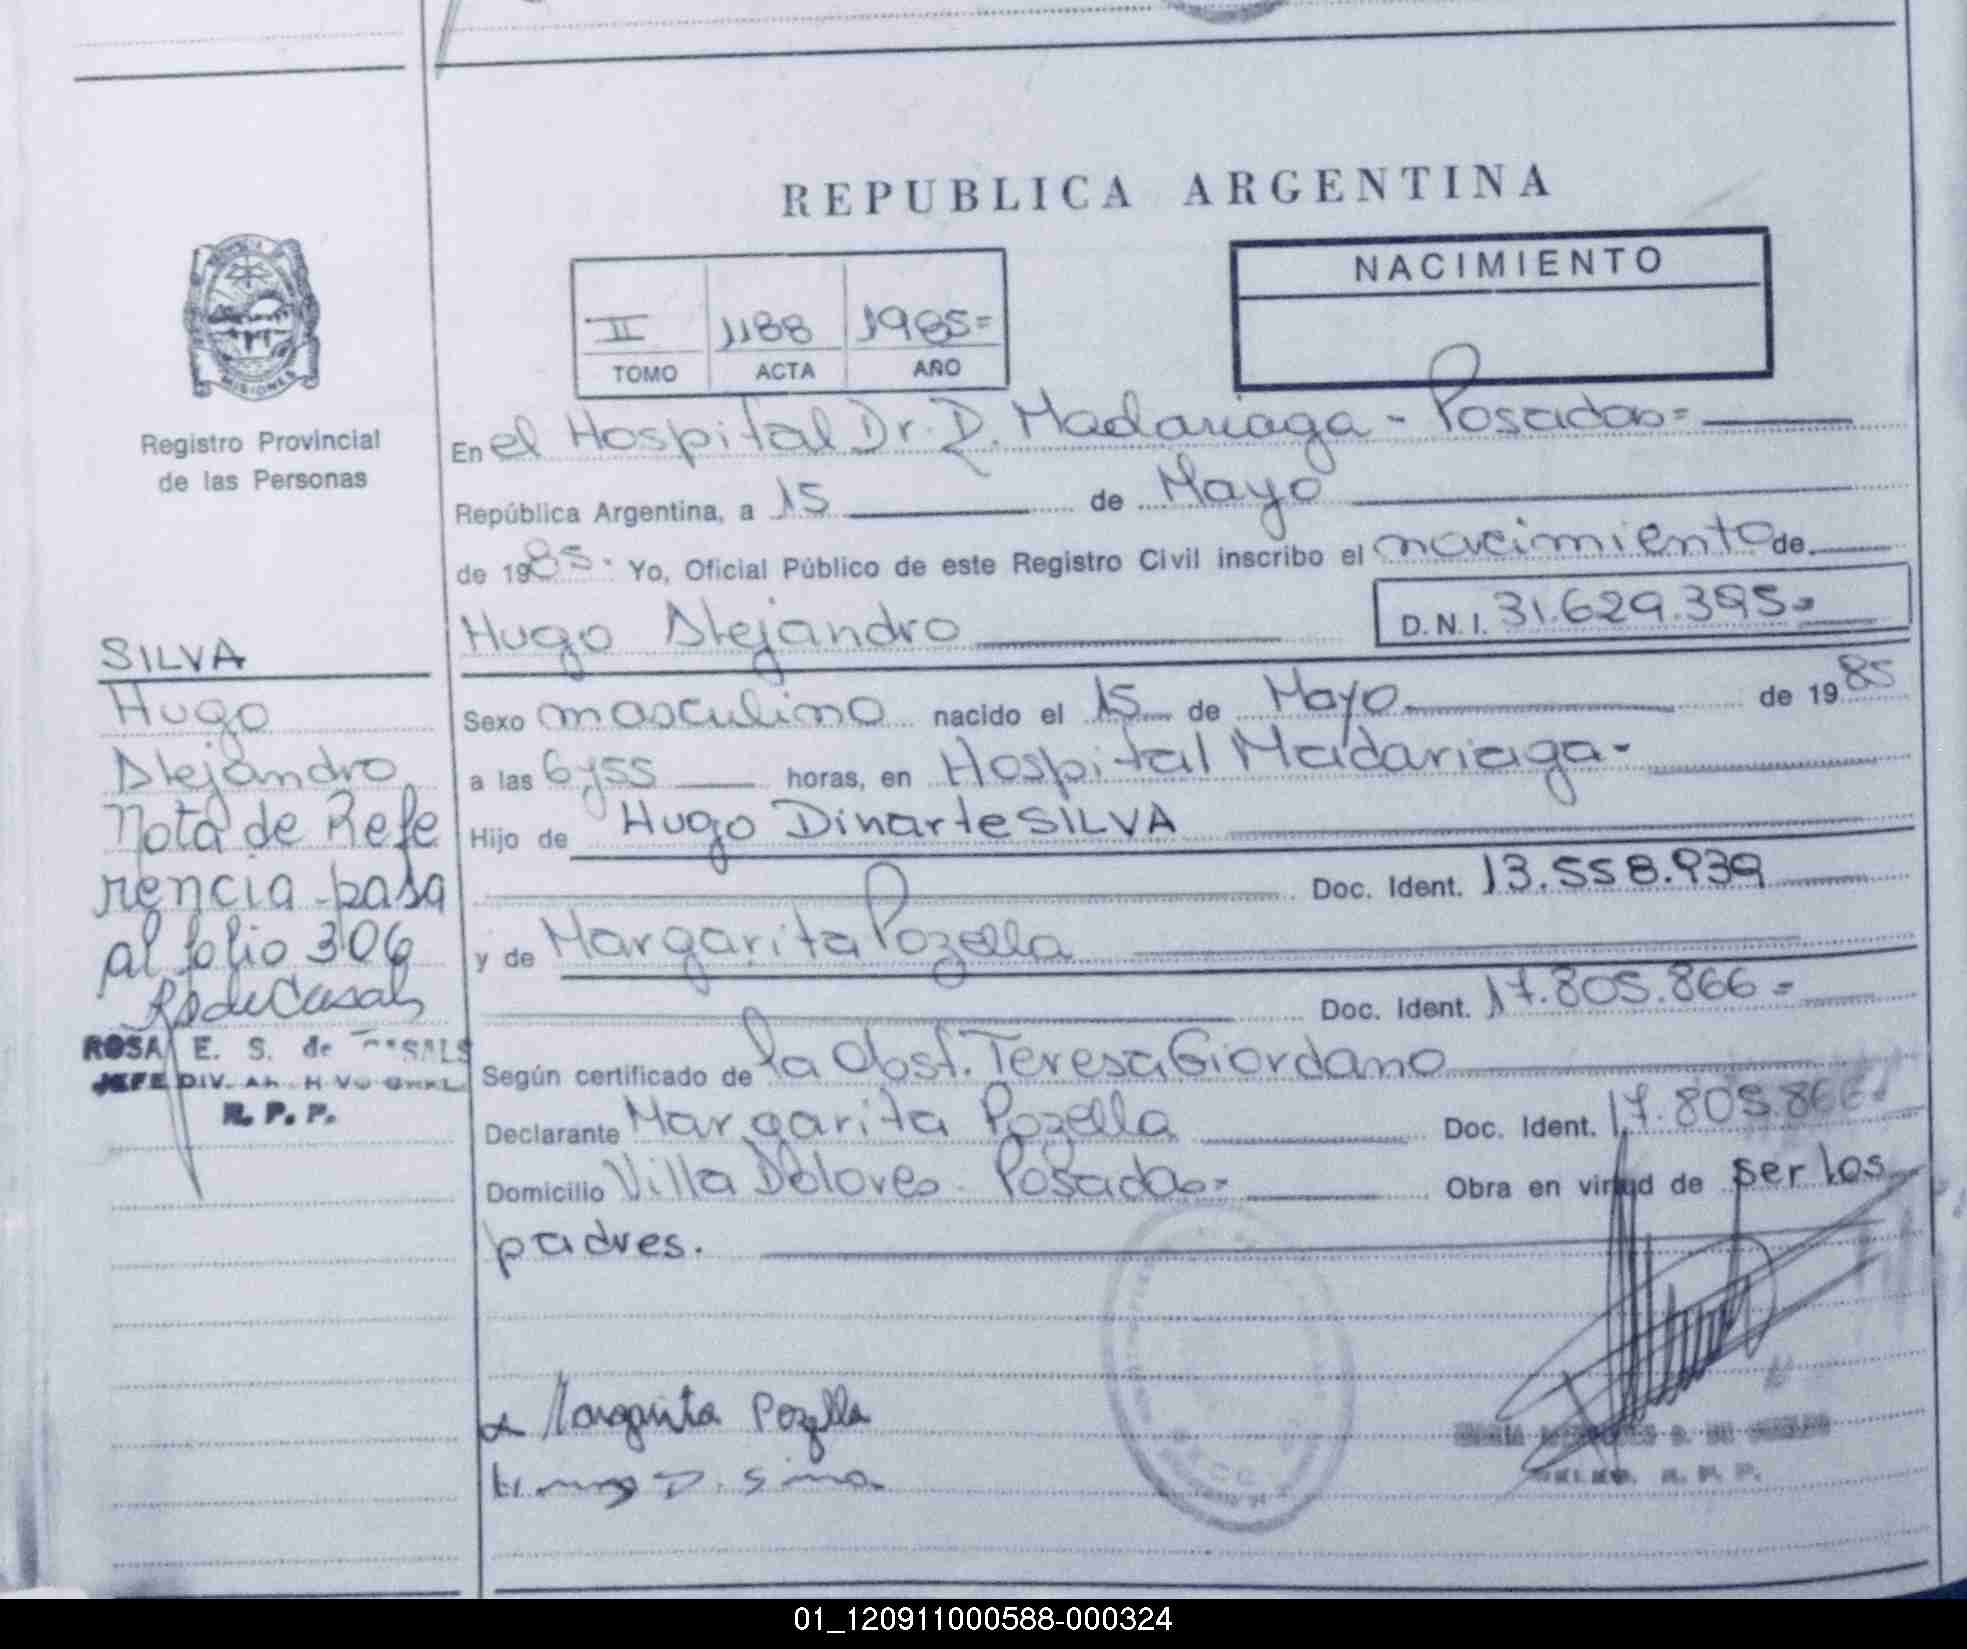 REPUBLICA ARGENTINA
NACIMIENTO
II 1188 1985=
TOMO ACTA AÑO
MISIONES
Registro Provincial
de las Personas
En el Hospital Dr. R. Madariaga - Posadas=
República Argentina, a 15 de Mayo
de 1985. Yo, Oficial Público de este Registro Civil inscribo el nacimiento de
Hugo Alejandro D.N.I. 31.629.395=
Sexo masculino nacido el 15 de Mayo de 1985
a las 6y55 horas, en Hospital Madariaga-
Hijo de Hugo Dinarte SILVA
Doc. Ident. 13.558.939
y de Margarita Pozella
Doc. Ident. 17.805.866=
Según certificado de la Obst. Teresa Giordano
Declarante Margarita Pozella Doc. Ident. 17.805.866=
Domicilio Villa Dolores - Posadas= Obra en virtud de ser los
padres.
Margarita Pozella
SILVA
Hugo
Alejandro
Nota de Refe
rencia pasa
al folio 306
ROSA E. S. de
JEFE DIV.
R. P. P.
01_120911000588-000324